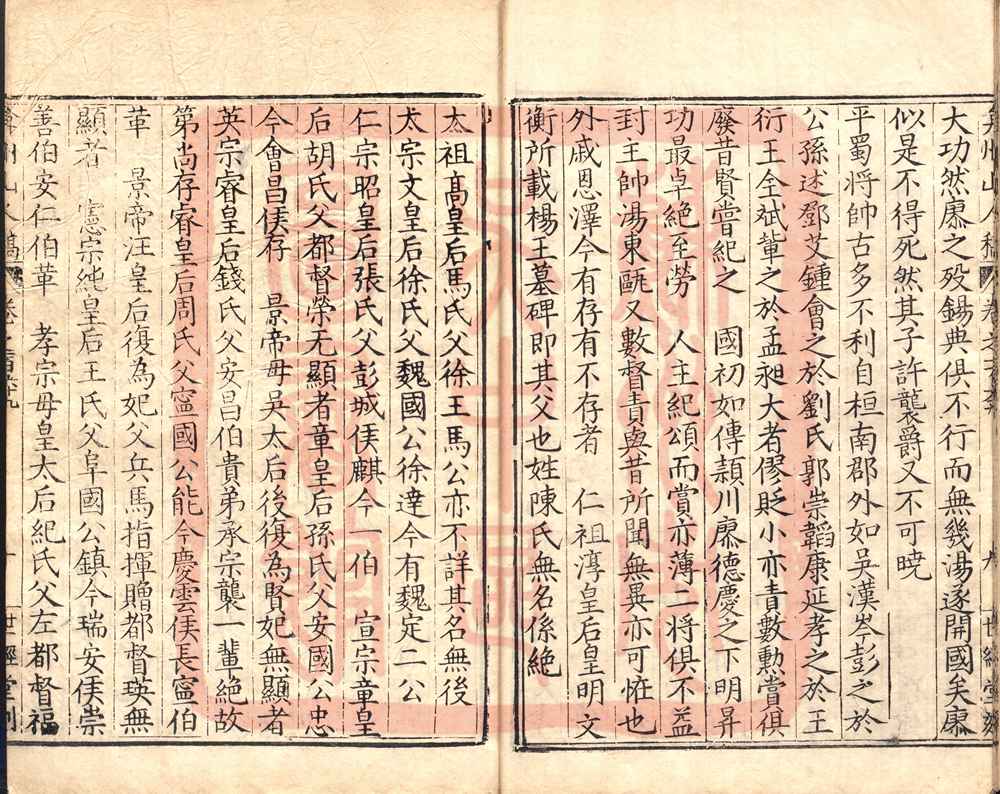 弇州山人稿
卷之
九
世經堂刻
大功然廖之歿錫典俱不行而無幾湯遂開國矣廖
似是不得死然其子許襲爵又不可曉
平蜀將帥古多不利自桓南郡外如吳漢岑彭之於
公孫述鄧艾鍾會之於劉氏郭崇韜康延孝之於王
衍王全斌輩之於孟昶大者僇貶小亦責數勳賞俱
廢昔賢嘗紀之　國初如傅潁川廖德慶之下明昇
功最卓絕至勞　人主紀頌而賞亦薄二將俱不益
封王帥湯東甌又數督責與昔所聞無異亦可恠也
外戚恩澤今有存有不存者　仁祖淳皇后皇明文
衡所載楊王墓碑即其父也姓陳氏無名係絕
太祖高皇后馬氏父徐王馬公亦不詳其名無後
太宗文皇后徐氏父魏國公徐達今有魏定二公
仁宗昭皇后張氏父彭城侯麒今一伯　宣宗章皇
后胡氏父都督榮无顯者章皇后孫氏父安國公忠
今會昌侯存　景帝母吳太后後復為賢妃無顯者
英宗睿皇后錢氏父安昌伯貴弟承宗襲一輩絕故
第尚存睿皇后周氏父寧國公能今慶雲侯長寧伯
革　景帝汪皇后復為妃父兵馬指揮贈都督瑛無
顯者　憲宗純皇后王氏父阜國公鎮今瑞安侯崇
善伯安仁伯革　孝宗母皇太后紀氏父左都督福
弇州山人稿
卷之
世經堂刻